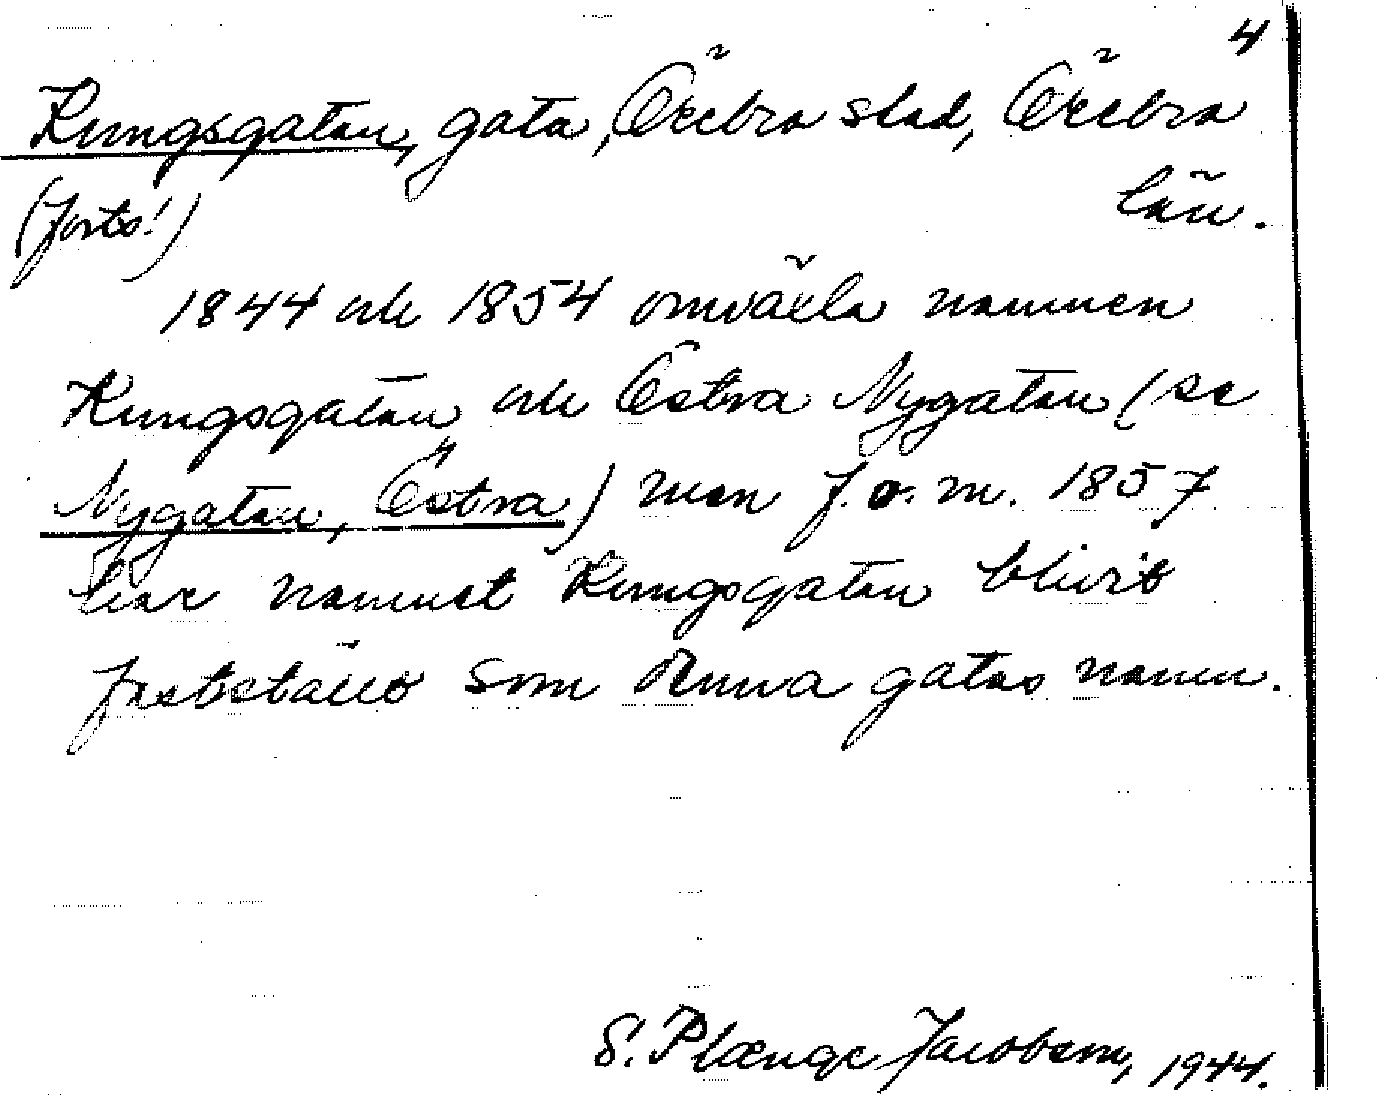 4
Kungsgatan, gata, Örebro stad, Örebro
län.
(forts!)
1844 och 1854 omväxla namnen
Kungsgatan och Östra Nygatan (se
Nygatan, Östra) men f.o.m. 1857
har namnet Kungsgatan blivit
fastställt som denna gatas namn.
S. Plænge Jacobson, 1944.